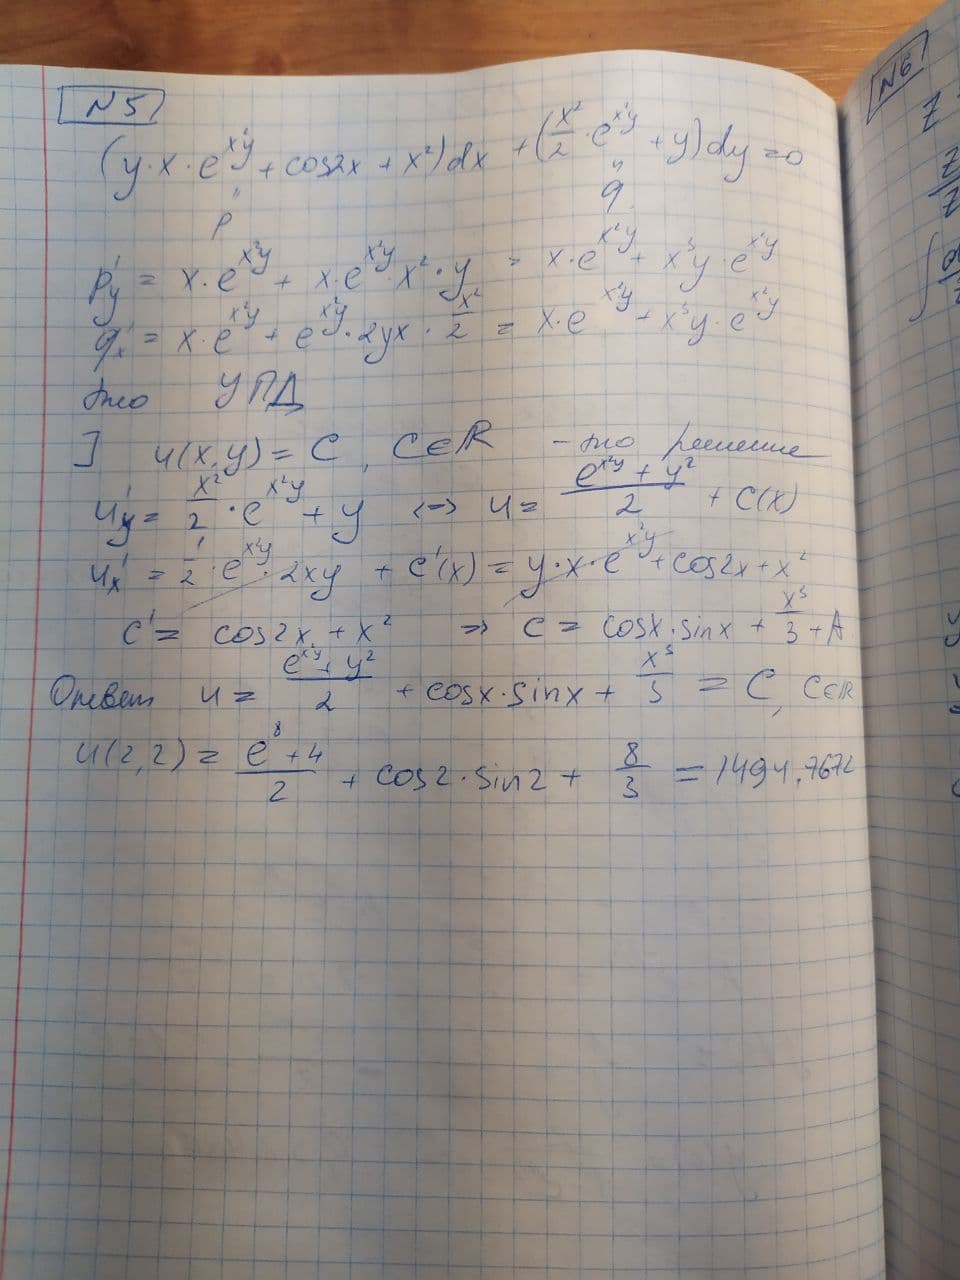 N5
(y·x·e^{x²y} + cos2x + x²)dx + (x²/2 · e^{x²y} + y)dy = 0
p q
p'_y = x·e^{x²y} + x·e^{x²y}·x²·y = x·e^{x²y} + x³y·e^{x²y}
q'_x = x·e^{x²y} + e^{x²y}·2yx·x²/2 = x·e^{x²y} + x³y·e^{x²y}
это УПД
] u(x,y) = C, C∈ℝ - это решение
u'_y = x²/2 · e^{x²y} + y <-> u = (e^{x²y} + y²)/2 + C(x)
u'_x = 1/2 · e^{x²y}·2xy + C'(x) = y·x·e^{x²y} + cos2x + x²
C' = cos2x + x² => C = cosx·sinx + x³/3 + A
Ответ u = (e^{x²y} + y²)/2 + cosx·sinx + x³/3 = C, C∈ℝ
u(2,2) = (e⁸+4)/2 + cos2·sin2 + 8/3 = 1494.7672
N6